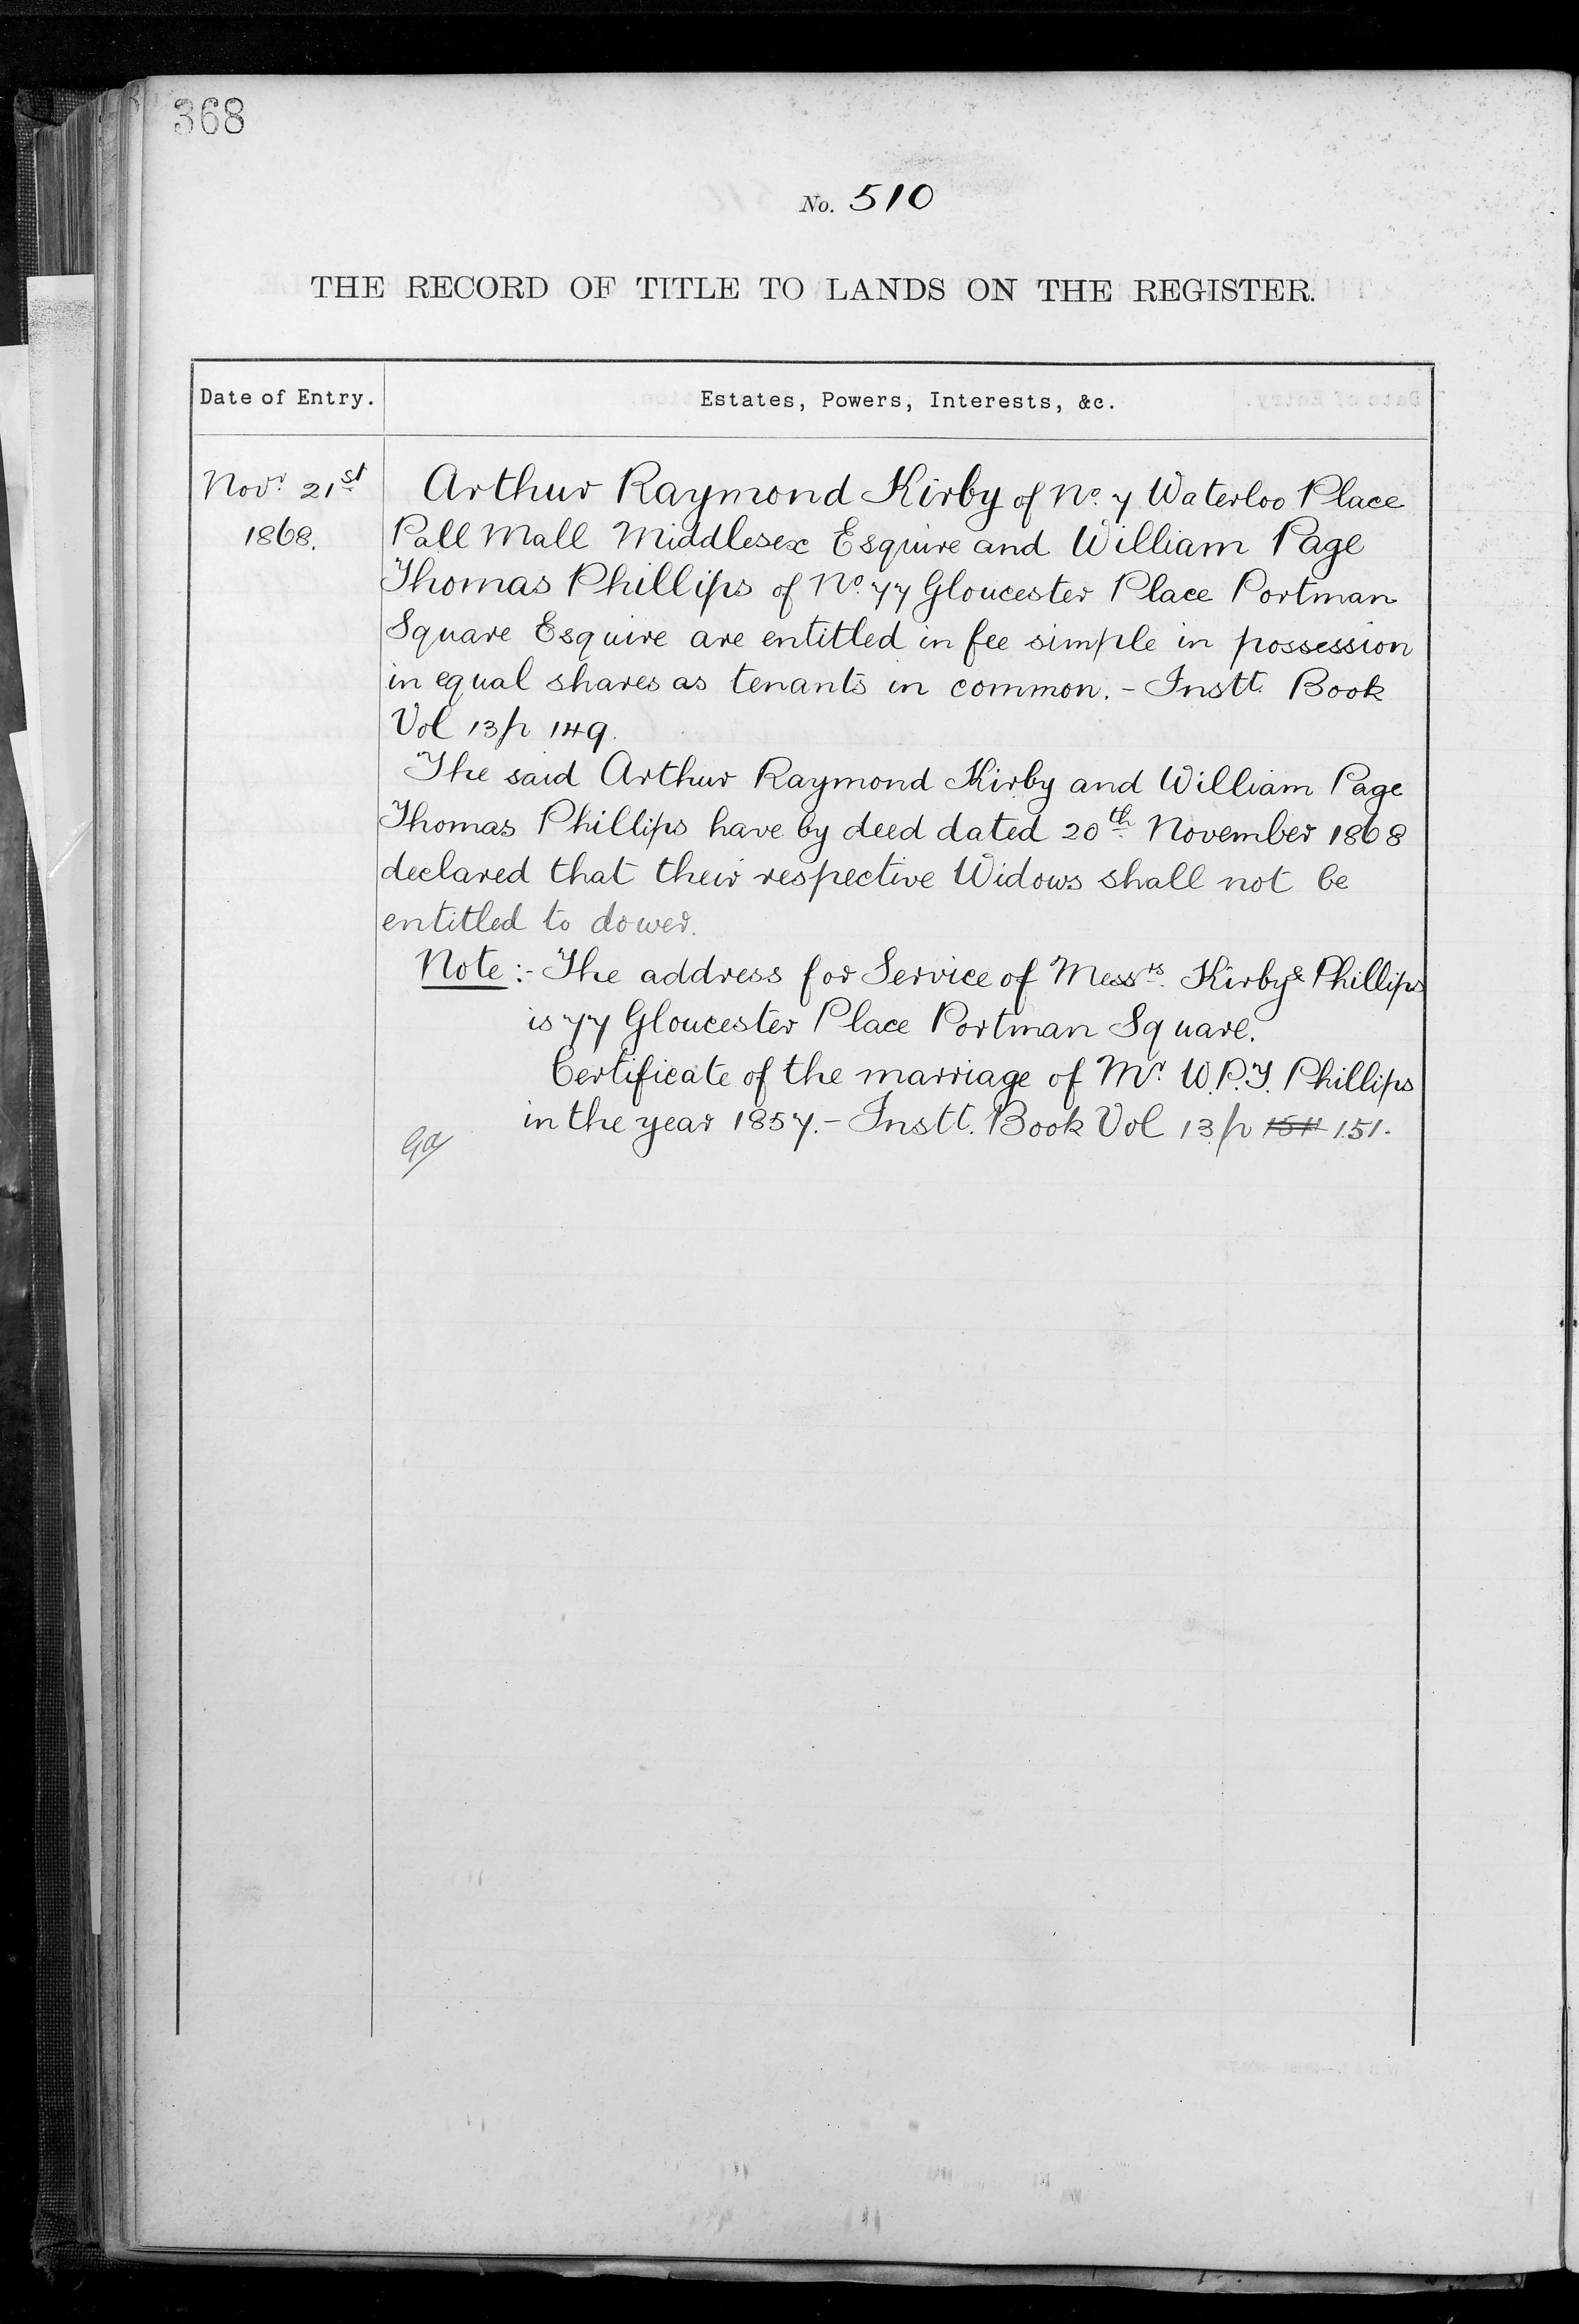 368
No. 510
THE RECORD OF TITLE TO LANDS ON THE REGISTER.
Date of Entry.
Estates, Powers, Interests, &c.
Novr. 21st
1868.
Arthur Raymond Kirby of No. 7 Waterloo Place
Pall Mall Middlesex Esquire and William Page
Thomas Phillips of No. 77 Gloucester Place Portman
Square Esquire are entitled in fee simple in possession
in equal shares as tenants in common. - Instt. Book
Vol 13 p 149.
The said Arthur Raymond Kirby and William Page
Thomas Phillips have by deed dated 20th November 1868
declared that their respective Widows shall not be
entitled to dower.
Note :- The address for Service of Messrs. Kirby & Phillips
is 77 Gloucester Place Portman Square.
Certificate of the marriage of Mr. W.P.T. Phillips
in the year 1857. - Instt. Book Vol 13 p 151.